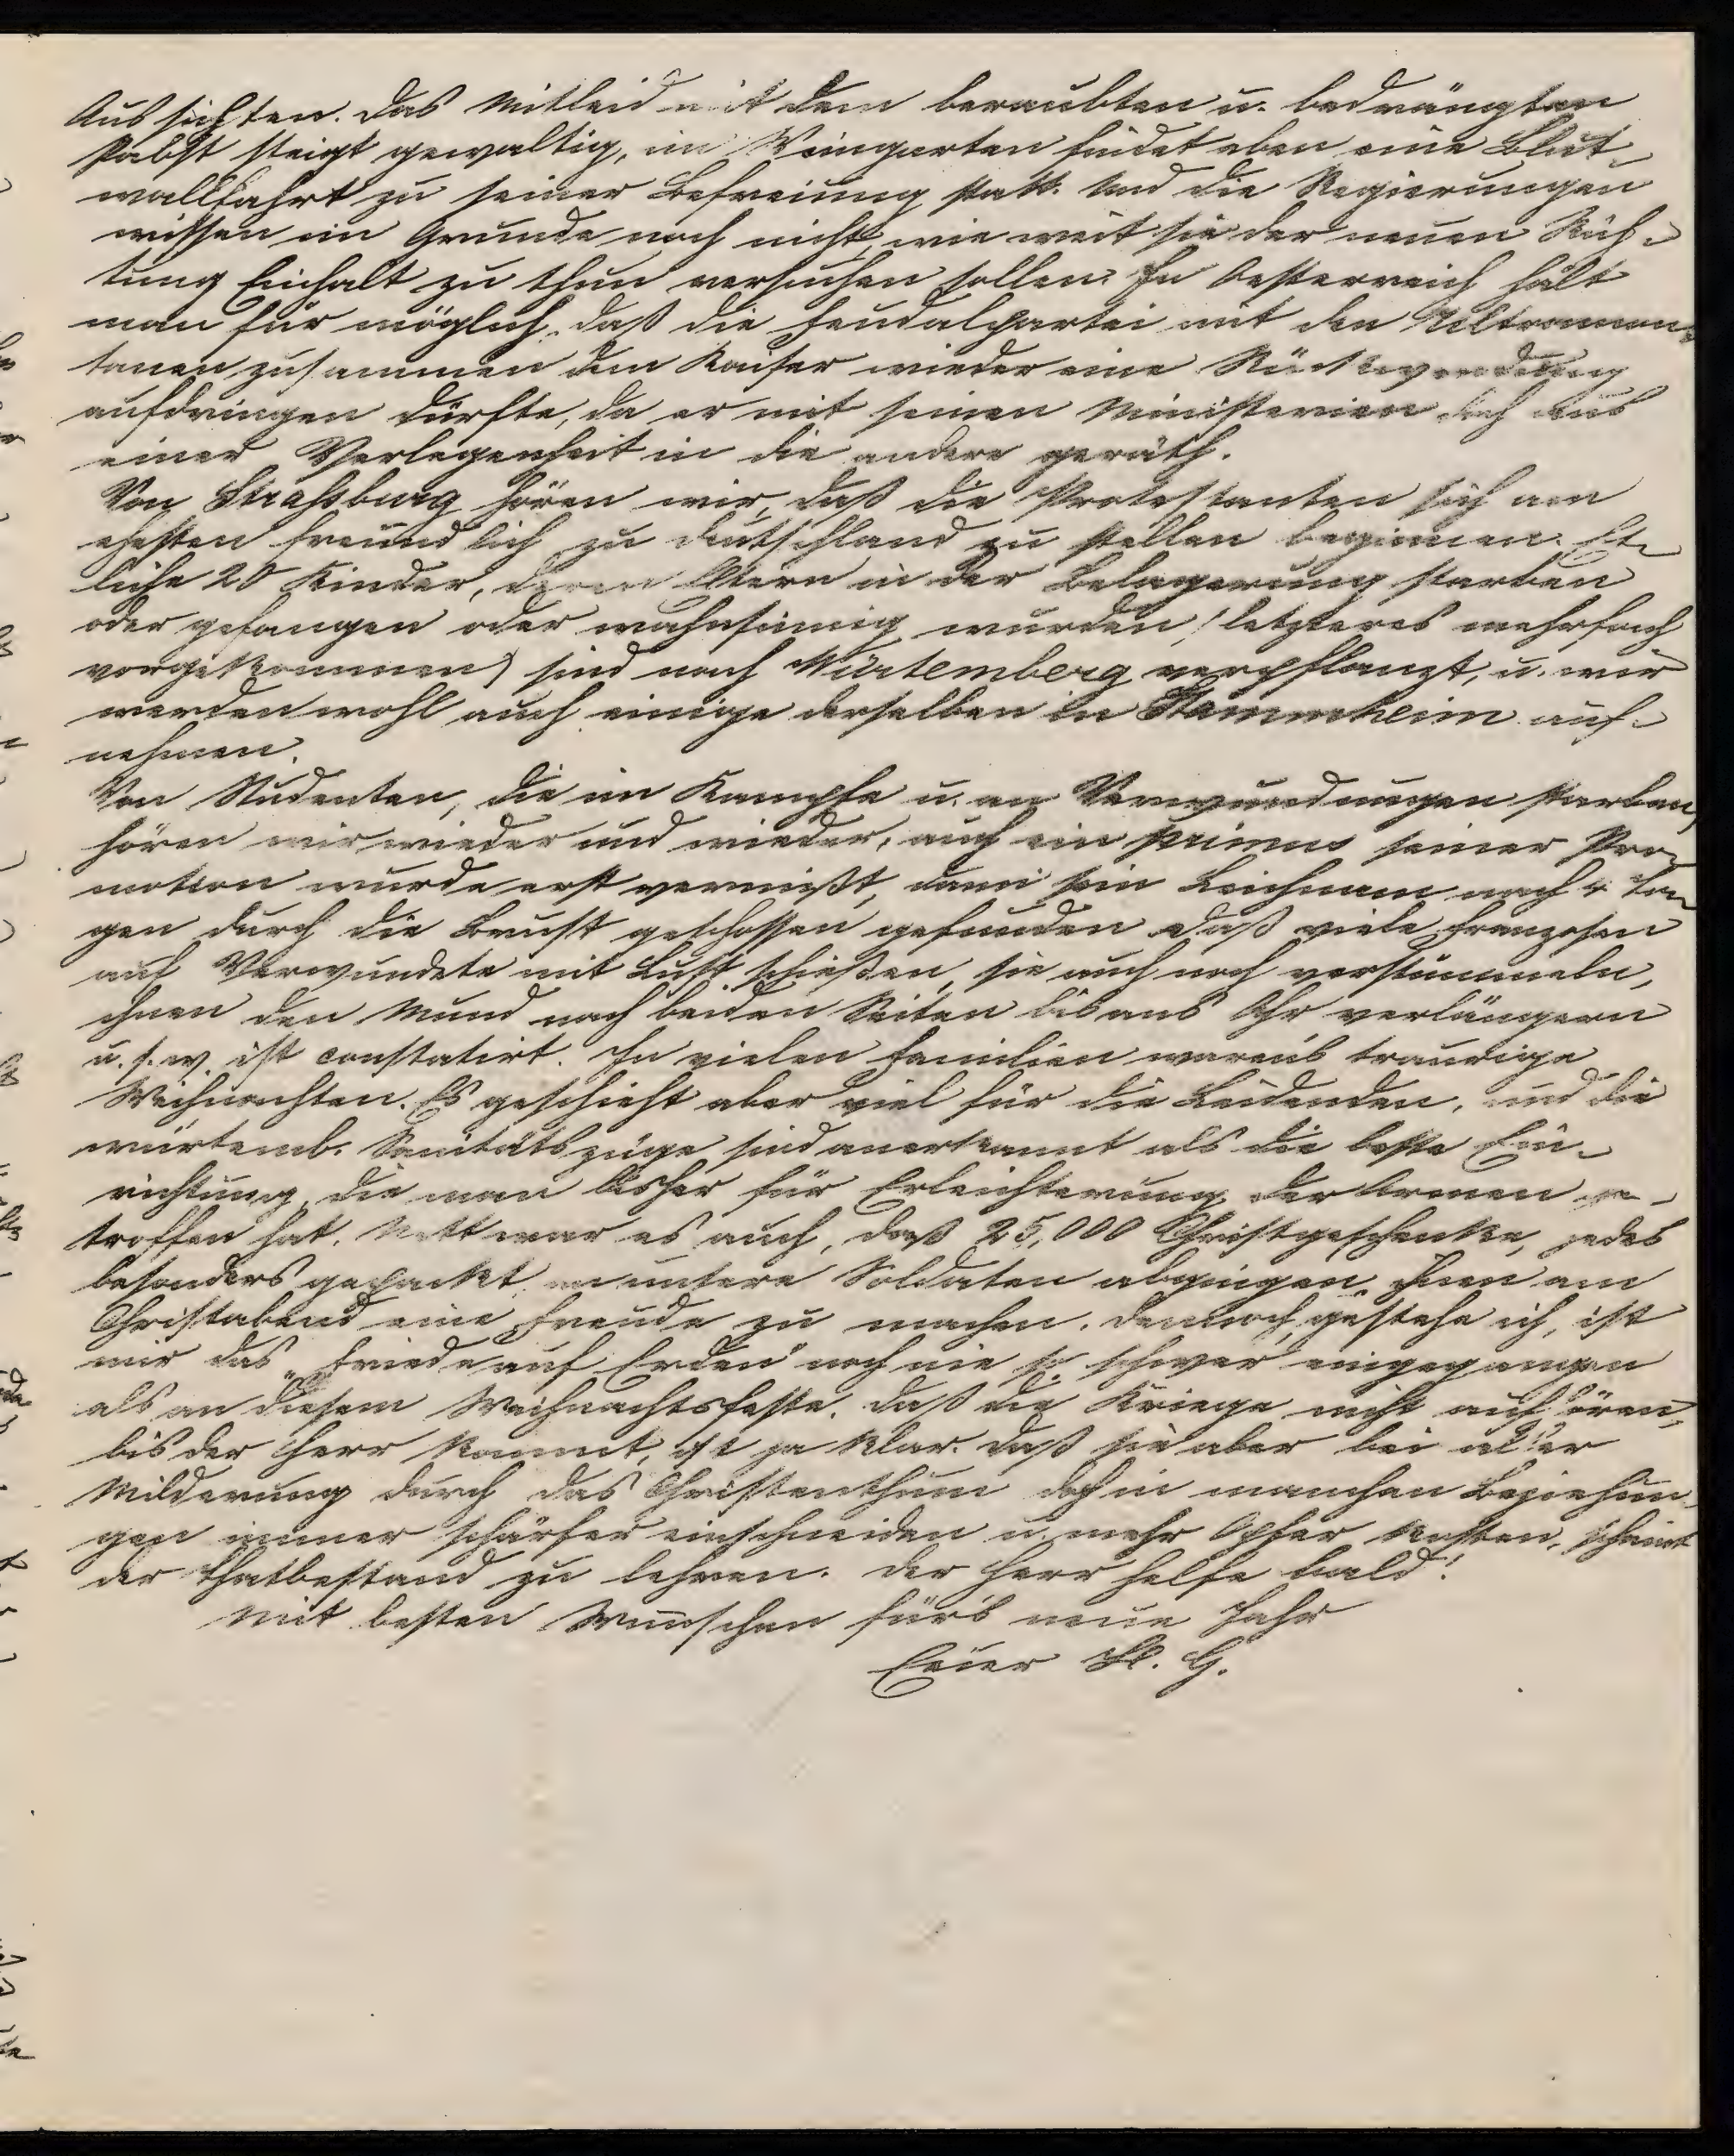 Aussichten. Das Mitleid mit dem beraubten u. bedrängten
Pabst steigt gewaltig, in Weingarten findet eben eine Blut-
wallfahrt zu seiner Befreiung statt. Und die Regierungen
wissen im Grunde noch nicht, wie weit sie der neuen Rich-
tung Einhalt zu thun versuchen sollen. In Oesterreich hält
man für möglich, daß die Feudalpartei mit den Ultramon-
tanen zusammen dem Kaiser wieder eine Rückwendung
aufdringen dürfte, da er mit seinen Ministerien doch aus
einer Verlegenheit in die andere geräth.
Von Strassburg hören wir, daß die Protestanten sich am
ehesten freundlich zu Deutschland zu stellen beginnen. Et-
liche 20 Kinder, deren Eltern in der Belagerung starben
oder gefangen oder wahnsinnig wurden (letzteres mehrfach
vorgekommen) sind nach Würtemberg verpflanzt, u. wir
werden wohl auch einige derselben in Stammheim auf-
nehmen.
Von Studenten, die im Kampfe u. an Verwundungen starben,
hören wir wieder und wieder, auch ein primus seiner Pro-
motion wurde erst vermißt, dann sein Leichnam nach 4 Ta-
gen durch die Brust geschossen gefunden. Daß viele Franzosen
auf Verwundete mit Lust schießen, sie auch noch verstümmeln,
ihnen den Mund nach beiden Seiten bis ans Ohr verlängern
u. s. w. ist constatirt. In vielen Familien warens traurige
Weihnachten. Es geschieht aber viel für die Leidenden, und die
würtemb. Sanitätszüge sind anerkannt als die beste Ein-
richtung, die man bisher für Erleichterung der Armen ge-
troffen hat. Nett war es auch, daß 25,000 Christgeschenke, jedes
besonders gepackt an unsere Soldaten abgingen, ihnen am
Christabend eine Freude zu machen. Dennoch, gestehe ich, ist
mir das „Friede auf Erden" noch nie so schwer eingegangen
als an diesem Weihnachtsfeste. Daß die Kriege nicht aufhören,
bis der Herr kommt, ist ja klar. Daß sie aber bei aller
Milderung durch das Christenthum doch in manchen Beziehun-
gen immer schärfer einschneiden u. mehr Opfer kosten, scheint
der Thatbestand zu lehren. Der Herr helfe bald!
Mit besten Wünschen für's neue Jahr
Euer H. G.